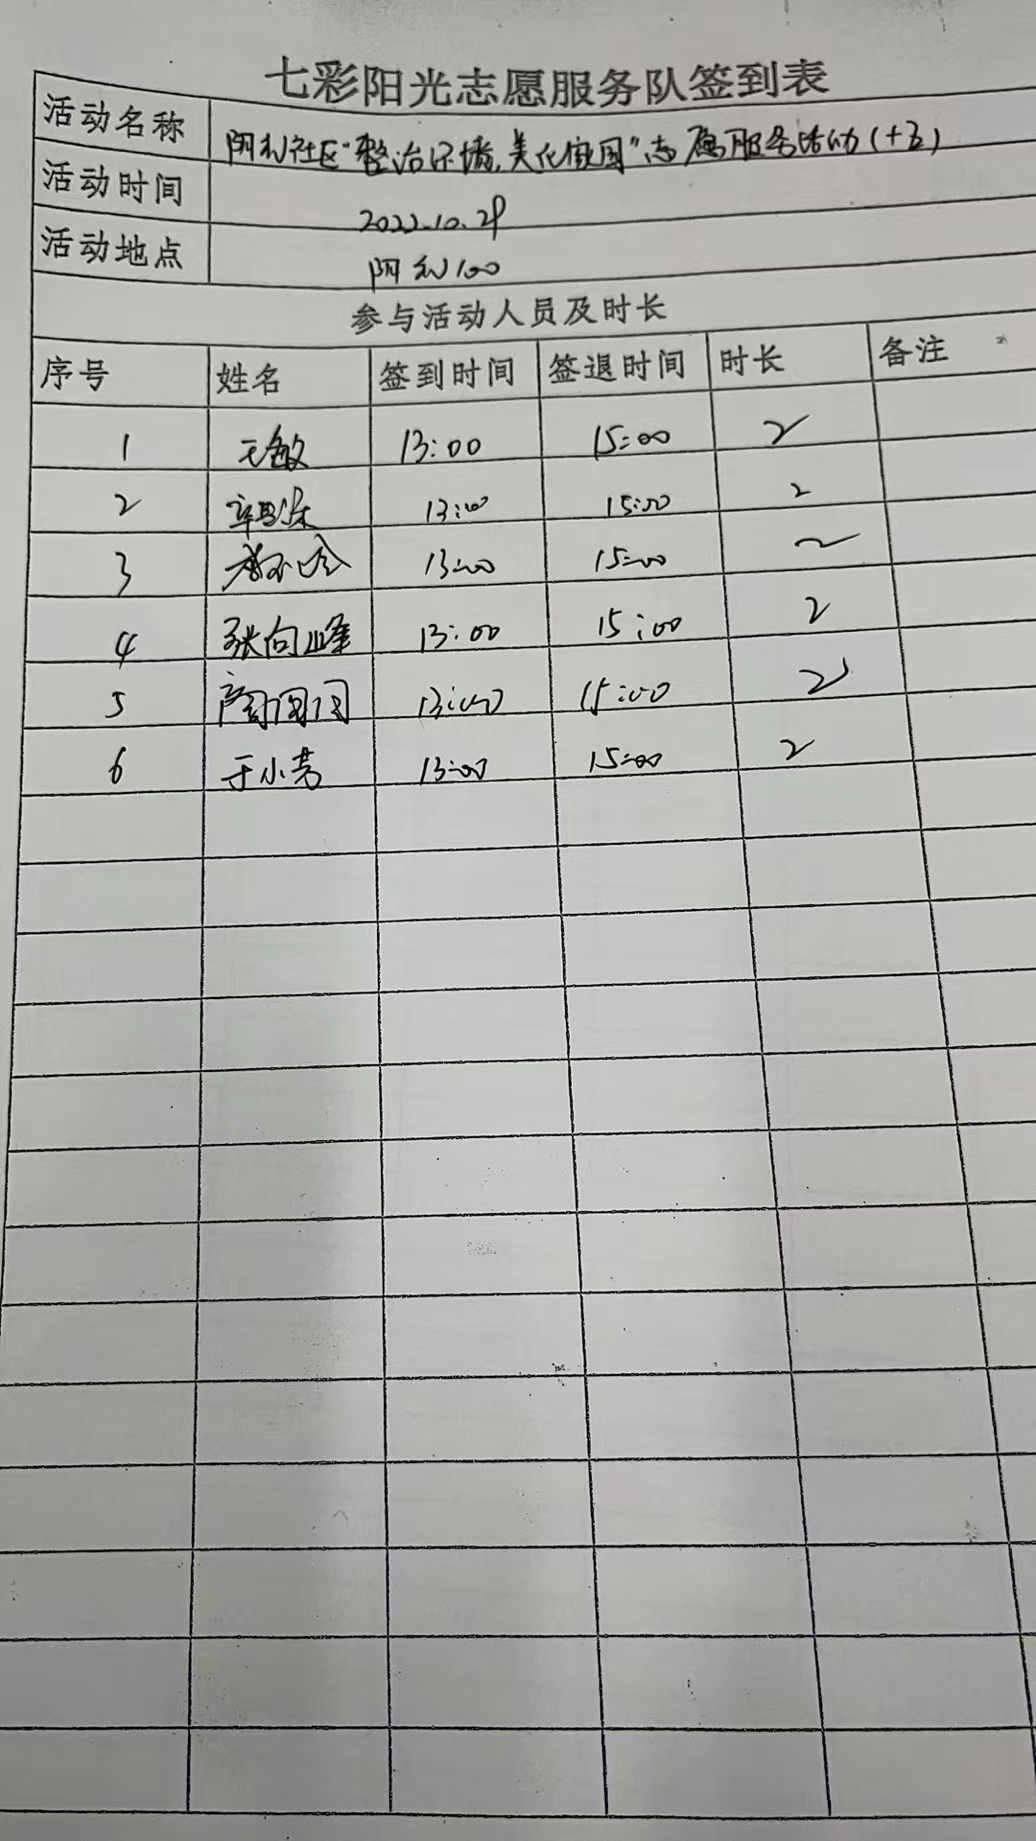 七彩阳光志愿服务队签到表
活动名称 阿利社区"整治环境,美化家园"志愿服务活动(十五)
活动时间 2022.10.29
活动地点 阿利100
参与活动人员及时长
序号 姓名 签到时间 签退时间 时长 备注
1 王敏 13:00 15:00 2
2 13:00 15:00 2
3 13:00 15:00 2
4 张向峰 13:00 15:00 2
5 13:00 15:00 2
6 于小芳 13:00 15:00 2